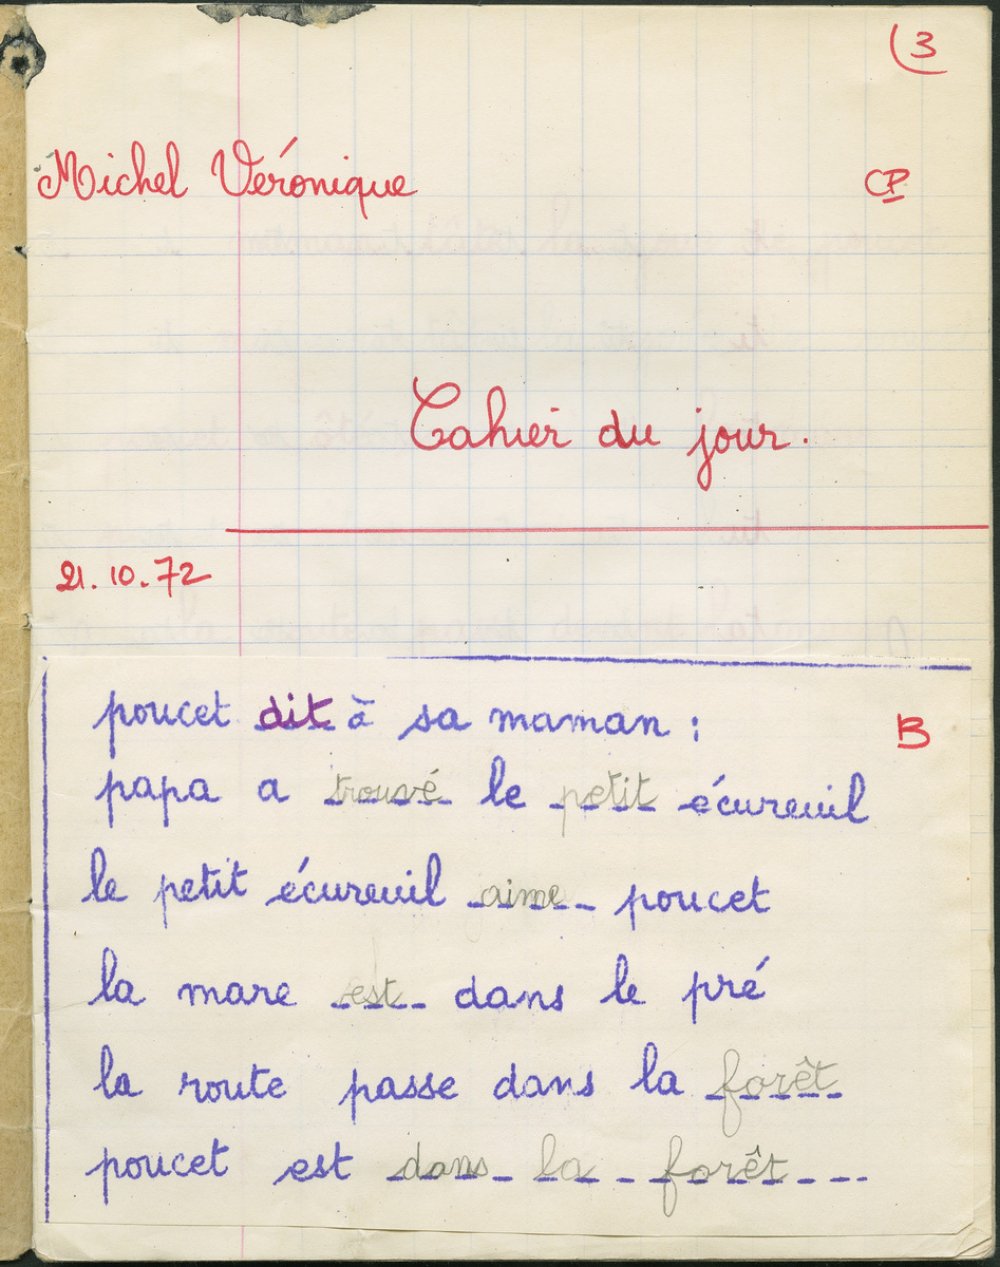 3
Michel Véronique CP
Cahier du jour.
21.10.72
poucet dit à sa maman :
B
papa a trouvé le petit écureuil
le petit écureuil aime poucet
la mare est dans le pré
la route passe dans la forêt
poucet est dans la forêt